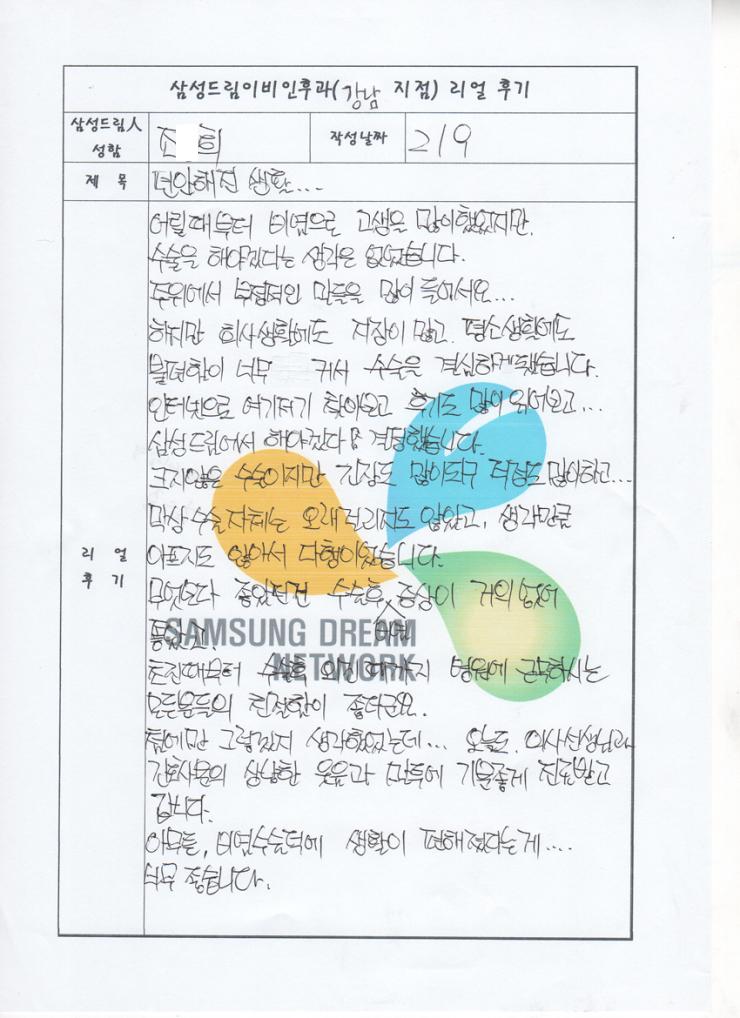 삼성드림이비인후과(강남 지점) 리얼 후기
삼성드림人 성함
조 희
작성날짜
2/9
제 목
편안해진 생활...
리 얼
후 기
어릴때부터 비염으로 고생은 많이했었지만.
수술을 해야겠다는 생각은 없었습니다.
주위에서 부정적인 말들을 많이 들어서요...
하지만 회사생활에도 지장이 많고. 평소생활에도
불편함이 너무 커서 수술을 결심하게됐습니다.
인터넷으로 여기저기 찾아보고 후기도 많이 읽어보고...
삼성드림에서 해야겠다 결정했습니다.
크지않은 수술이지만 긴장도 많이되구 걱정도 많이하고...
막상 수술자체는 오래 걸리지도 않았고, 생각만큼
아프지도 않아서 다행이었습니다.
무엇보다 좋았던건 수술후 비염 증상이 거의 없어
졌고.
SAMSUNG DREAM
NETWORK
초진때부터 수술후 외진때까지 병원에 근무하시는
모든분들의 친절함이 좋더군요.
첨에만 그렇겠지 생각했었는데... 오늘도. 의사선생님과
간호사분의 상냥한 웃음과 말투에 기분좋게 진료받고
갑니다.
아무튼, 비염수술덕에 생활이 편해졌다는게....
너무 좋습니다.